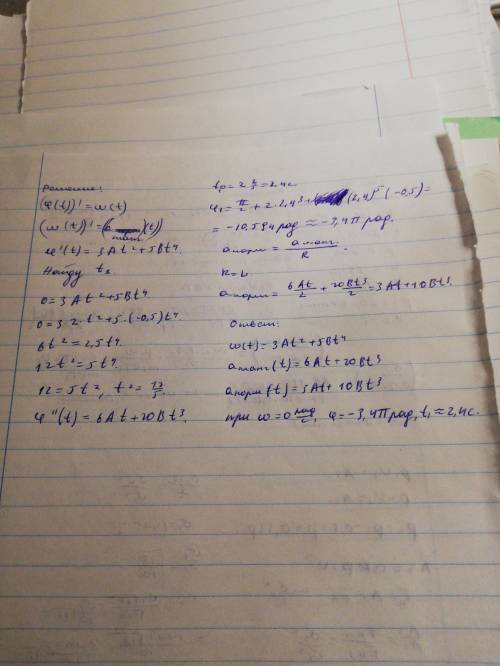 Решение:
(φ(t))' = ω(t)
(ω(t))' = (a танг (t))
φ'(t) = 3At² + 5Bt⁴
Найду t₁
0 = 3At² + 5Bt⁴
0 = 3·2·t² + 5·(-0,5)t⁴
6t² = 2,5t⁴
12t² = 5t⁴
12 = 5t², t² = 12/5
φ''(t) = 6At + 20Bt³
= 2,4с.
φ₁ = π/2 + 2·2,4³ + (2,4)⁵(-0,5) =
= -10,594 рад ≈ -3,4π рад.
a норм = a танг. / R.
R = b
a норм = 6At/2 + 20Bt³/2 = 3At + 10Bt³
Ответ:
ω(t) = 3At² + 5Bt⁴
a танг (t) = 6At + 20Bt³
a норм (t) = 3At + 10Bt³
при ω = 0 рад/с, φ = -3,4π рад, t₁ ≈ 2,4с.